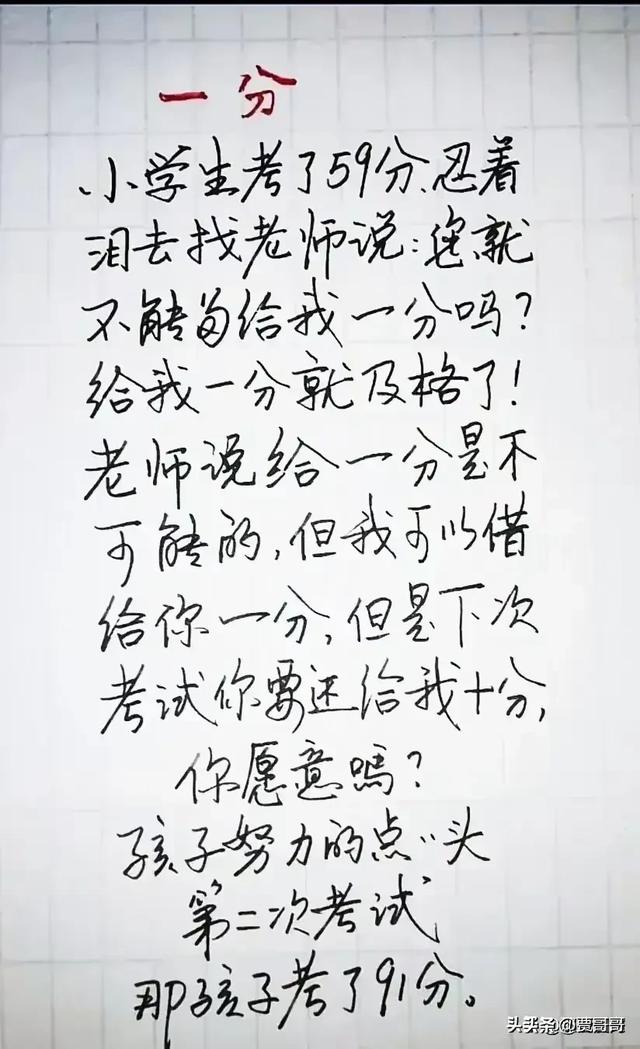 一分
小学生考了59分、忍着
泪去找老师说：您就
不能多给我一分吗？
给我一分就及格了！
老师说给一分是不
可能的，但我可以借
给你一分，但是下次
考试你要还给我十分，
你愿意嗎？
孩子努力的点〃头
第二次考试
那孩子考了91分。
头条@贾哥哥